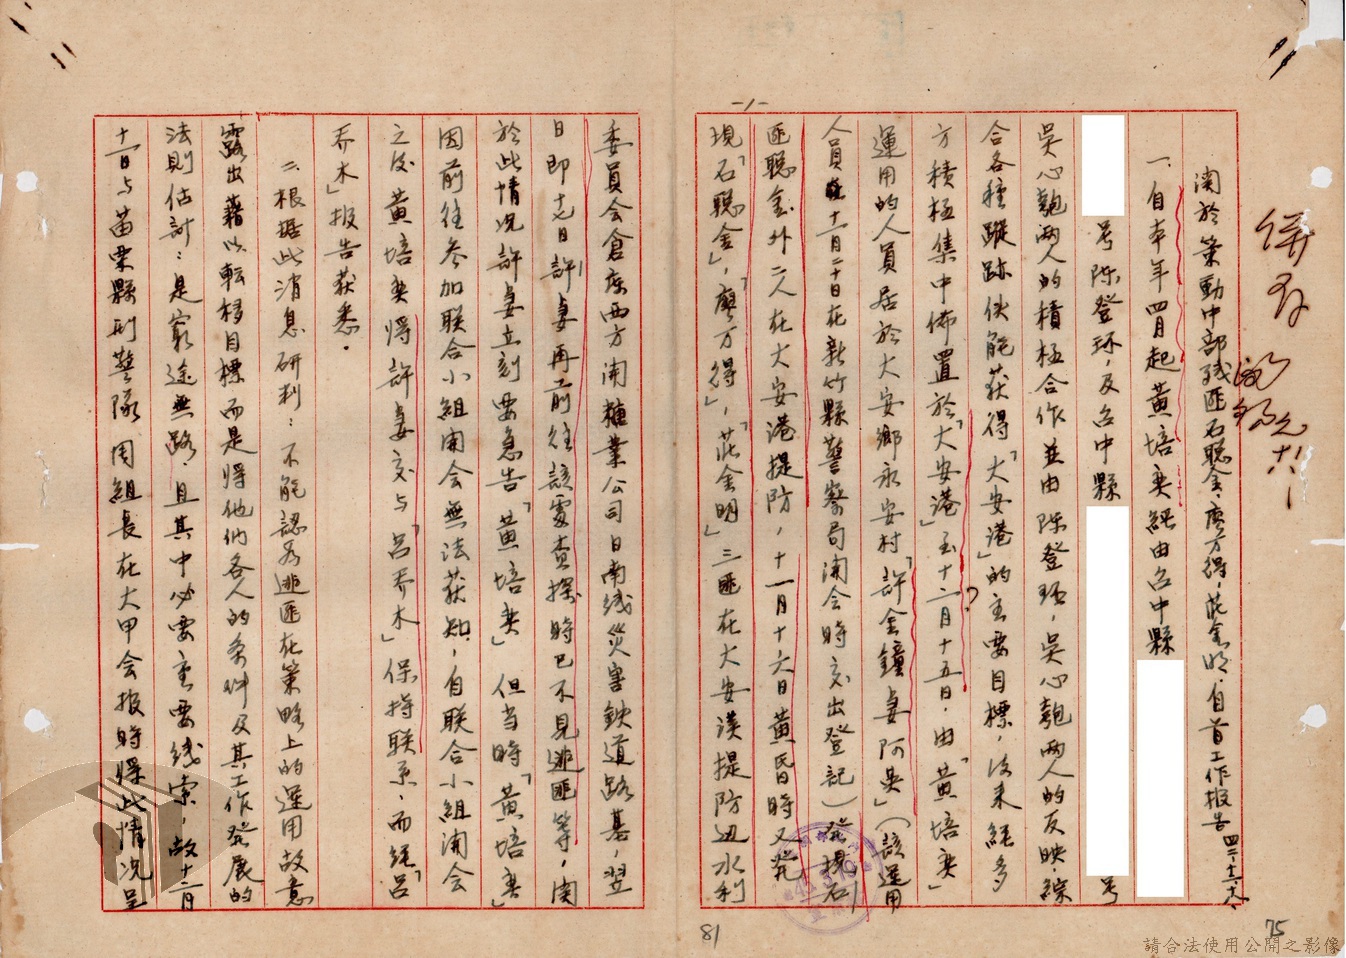 併存
-1-
関於策動中部残匪石聡金、廖万得、莊金明、自首工作报告 四二、十二、十八、
一、自本年四月起黄培奕経由台中縣
号陈登环，及台中縣 号
吴心匏两人的積极合作並由陈登环，吴心匏两人的反映，綜
合各種蹤跡仅能获得「大安港」的主要目標，後来経多
方積极集中佈置於「大安港」至十二月十五日，由「黄培奕」
運用的人員居於大安鄉永安村「許金鐘妻阿吳」（該運用
人員十一月二十日在新竹縣警察局開会時交出登記）発現石
匪聡金外二人在大安港提防，十一月十六日黄昏時又発
現「石聡金」，「廖万得」，「莊金明」三匪在大安溪提防边水利
委員会倉庫西方開糖業公司日南线災害鉄道路基，翌
日即十七日許妻再前往該處查探時已不見逃匪等，関
於此情况許妻立刻要急告「黄培奕」但当時「黄培奕」
因前往参加联合小組開会無法获知，自联合小組開会
之後黄培奕将許妻交与「呂乔木」保持联系，而経「呂
乔木」报告获悉。
二、根据此消息研判：不能認為逃匪在策略上的運用故意
露出藉以転移目標而是将他们各人的条件及其工作発展的
法則估計：是窮途無路，且其中必要主要线索，故十二月
十一日与苗栗縣刑警隊周組長在大甲会报時将此情况呈
81
75
請合法使用公開之影像